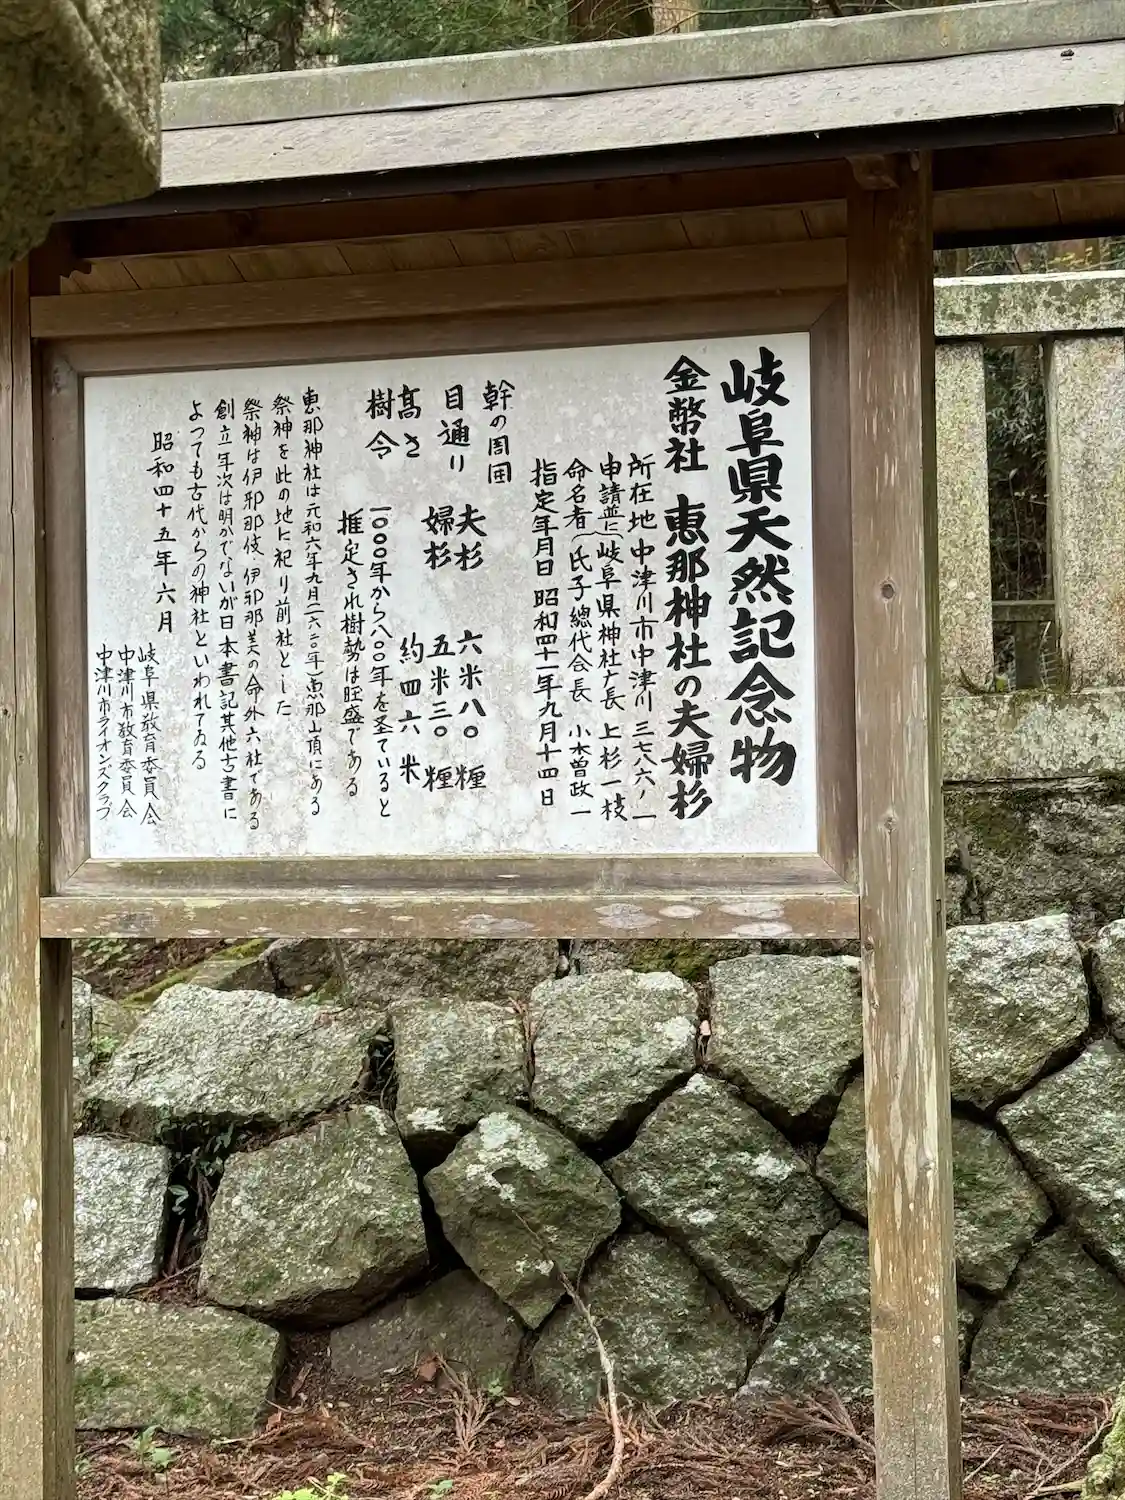 岐阜県天然記念物
金幣社 恵那神社の夫婦杉
所在地 中津川市中津川 三七八六ノ一
申請並に 岐阜県神社庁長 上杉一枝
命名者 氏子總代会長 小木曽政一
指定年月日 昭和四十一年九月十四日
幹の周囲
目通り 夫杉 六米八〇糎
婦杉 五米三〇糎
髙さ 約四六米
樹令 一〇〇〇年から八〇〇年を圣ていると
推定され樹勢は旺盛である
恵那神社は元和六年九月(一六二〇年)恵那山頂にある
祭神を此の地に祀り前社とした
祭神は伊邪那伎・伊邪那美の命外六社である
創立年次は明かでないが日本書記其他古書に
よつても古代からの神社といわれてゐる
昭和四十五年六月
岐阜県教育委員会
中津川市教育委員会
中津川市ライオンズクラブ